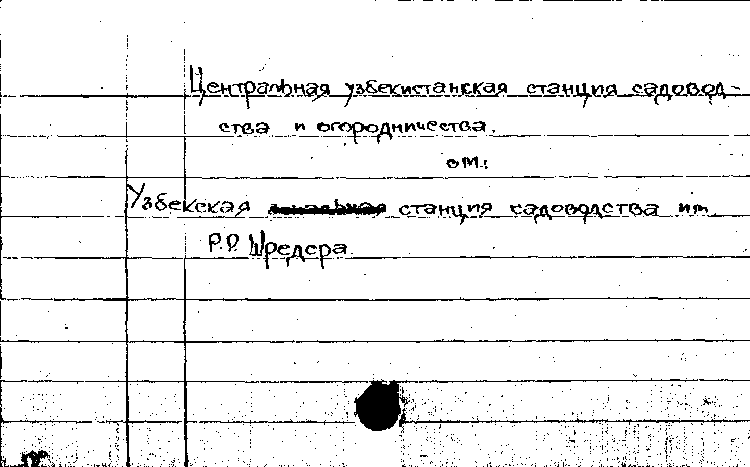 Центральная узбекистанская станция садовод-
ства и огородничества.
см.:
Узбекская станция садоводства им.
Р.Р. Шредера.